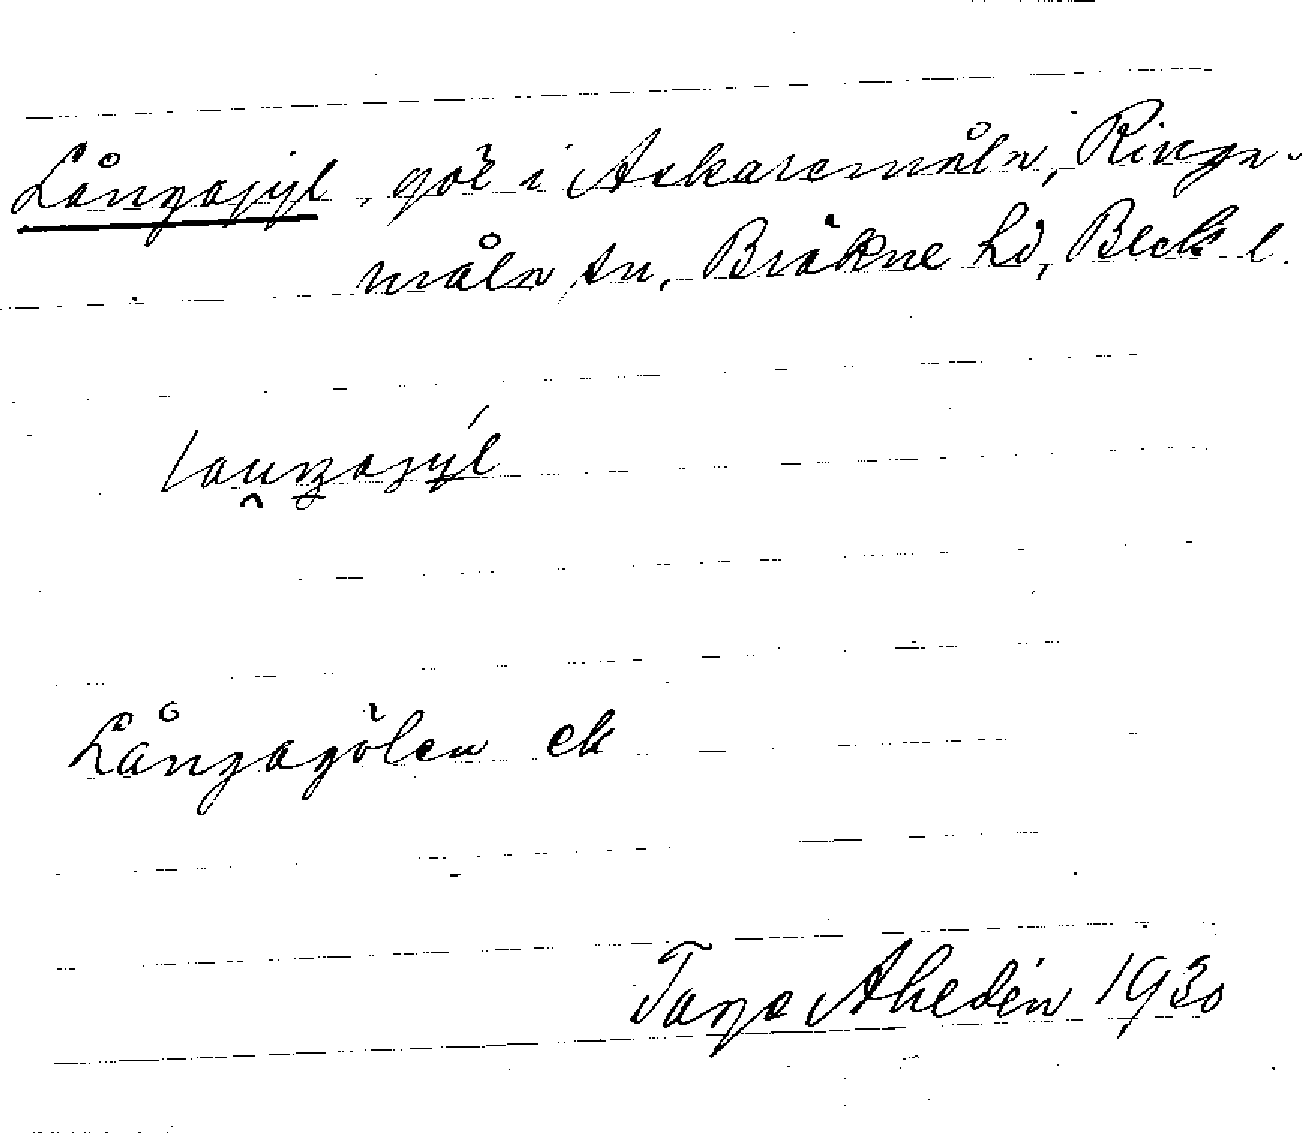 Långajyl, göl i Askaremåla, Ringa-
måla sn, Bräkne hd, Blek. l.
laungajýl
Långagölen ek
Tage Ahedén 1930